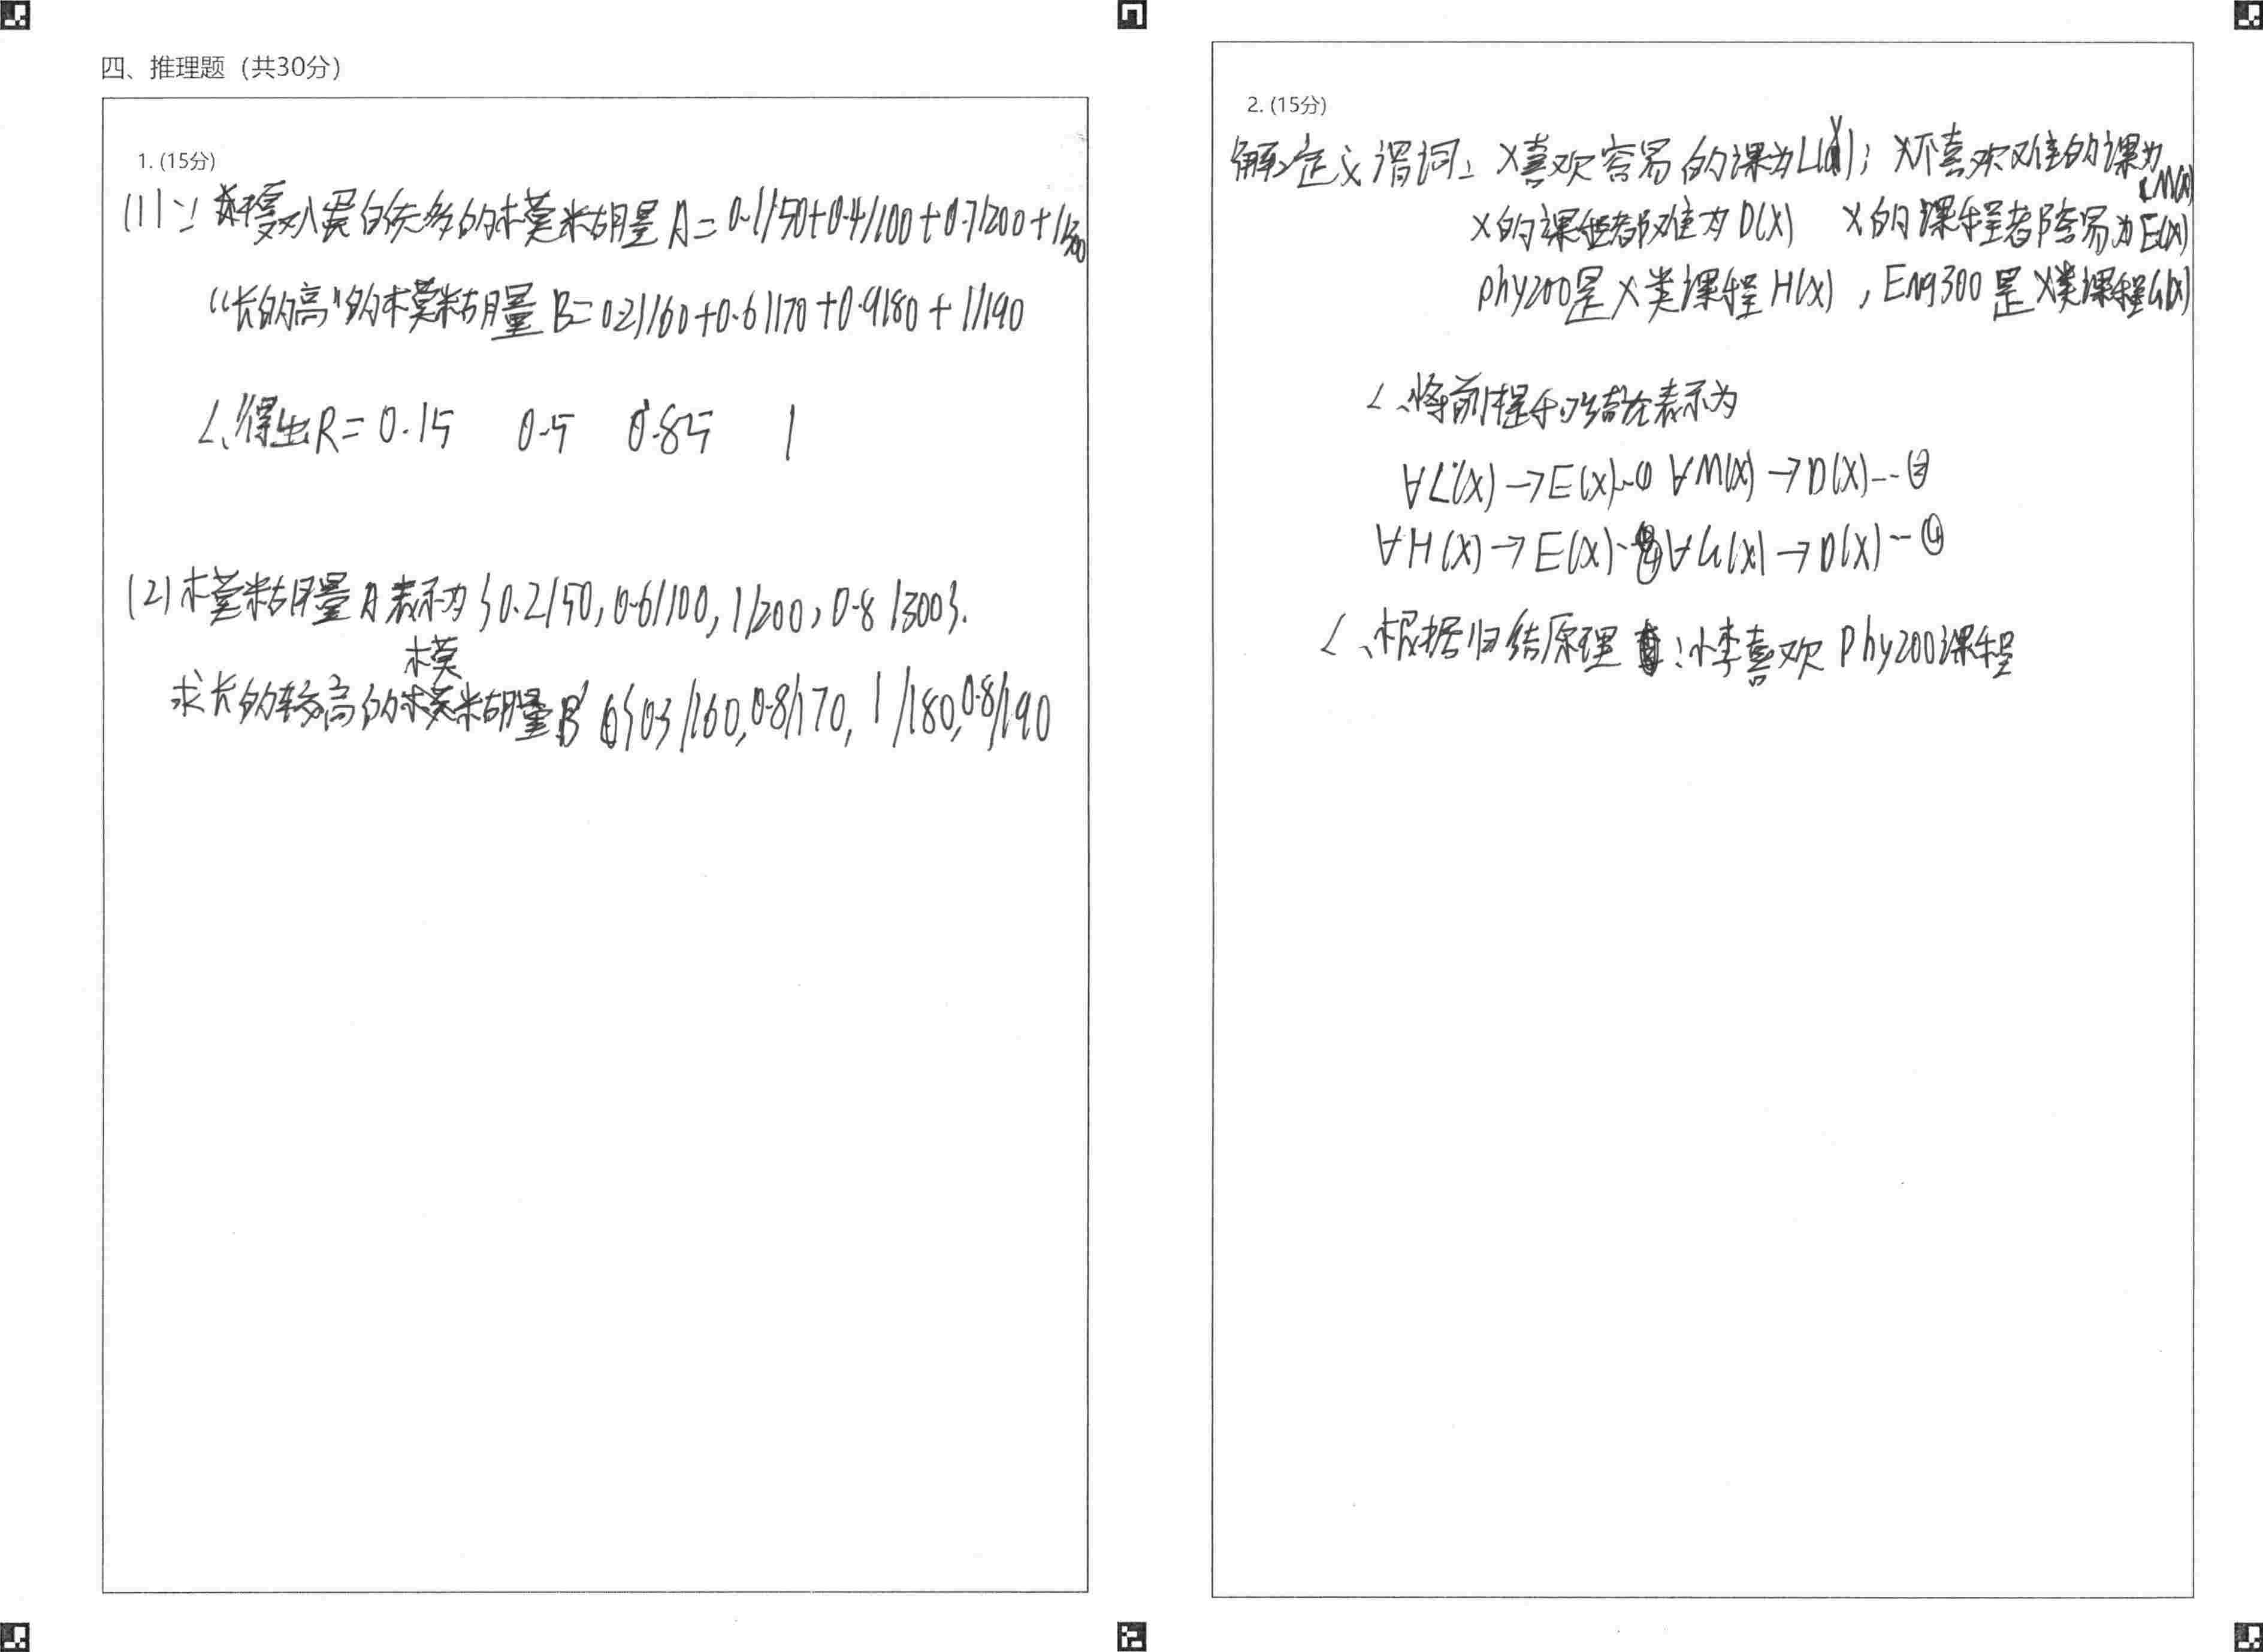 四、推理题（共30分）
1. (15分)
(1)∵ 蛋白质多的模糊量 A = 0.1/50+0.4/100+0.7/200+1/300
“长的高”的模糊量 B = 0.2/160+0.6/170+0.9/80+1/190
∴得出R = 0.15 0.5 0.85 1
(2)模糊量A表示为{0.2/50, 0.6/100, 1/200, 0.8/300}.
模
求长的较高的模糊量B' {0.3/160, 0.8/170, 1/180, 0.8/190
2. (15分)
解：定义谓词：x喜欢容易的课为L(x)；x不喜欢难的课为
M(x)
x的课程都难为D(x) x的课程都容易为E(x)
phy200是x类课程H(x)，Eng300是x类课程G(x)
∴将前提和结论表示为
∀L(x)→E(x)--① ∀M(x)→D(x)--②
∀H(x)→E(x)- ∀G(x)→D(x)--④
∴根据归结原理：小李喜欢Phy200课程